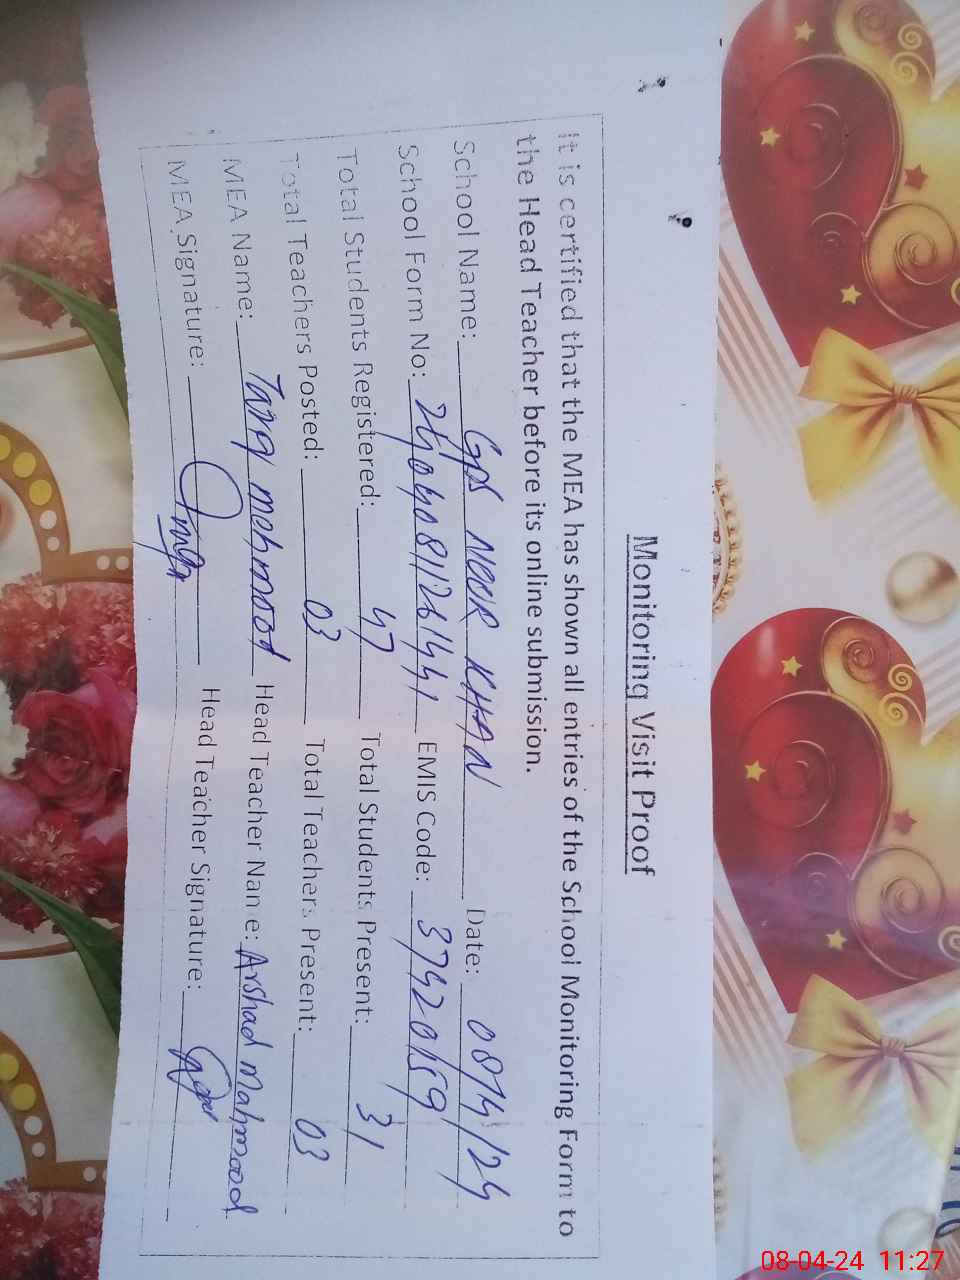 Monitoring Visit Proof
It is certified that the MEA has shown all entries of the School Monitoring Form to
the Head Teacher before its online submission.
School Name: GPS NOOR KHAN Date: 08/4/24
School Form No: EMIS Code: 37420159
Total Students Registered: 47 Total Students Present: 31
Total Teachers Posted: 03 Total Teachers Present: 03
MEA Name: Tariq mehmood Head Teacher Name: Arshad Mahmood
MEA Signature: Head Teacher Signature:
08-04-24 11:27